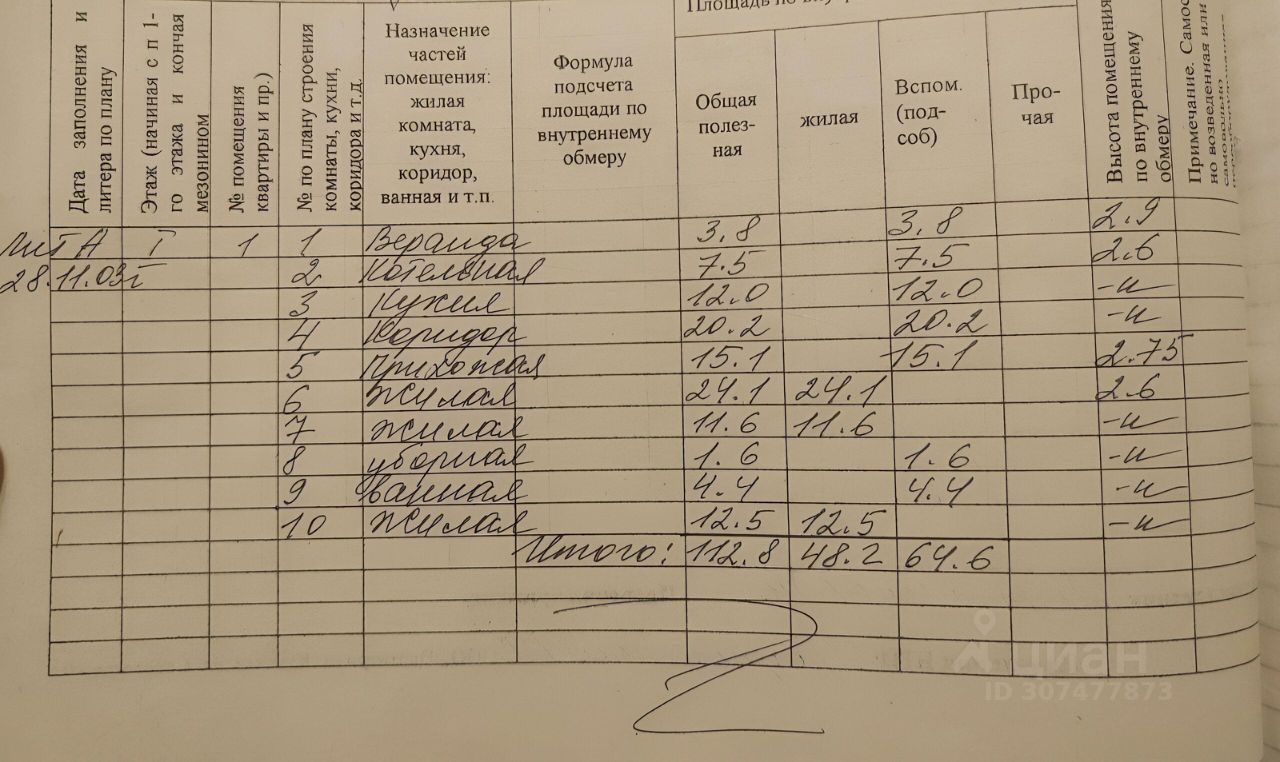 Площадь по внутр
Дата заполнения и литера по плану
Этаж (начиная с п 1-го этажа и кончая мезонином
№ помещения квартиры и пр.)
№ по плану строения комнаты, кухни, коридора и т.д.
Назначение частей помещения: жилая комната, кухня, коридор, ванная и т.п.
Формула подсчета площади по внутреннему обмеру
Общая полез-ная
жилая
Вспом. (под-соб)
Про-чая
Высота помещения по внутреннему обмеру
Примечание. Самос но возведенная или самовольно
Лит А I 1 1 Веранда 3.8 3.8 2.9
28.11.03г 2 Котельная 7.5 7.5 2.6
3 Кухня 12.0 12.0 -и
4 Коридор 20.2 20.2 -и
5 Прихожая 15.1 15.1 2.75
6 Жилая 24.1 24.1 2.6
7 жилая 11.6 11.6 -и
8 уборная 1.6 1.6 -и
9 ванная 4.4 4.4 -и
10 жилая 12.5 12.5 -и
Итого: 112.8 48.2 64.6
циан
ID 307477873